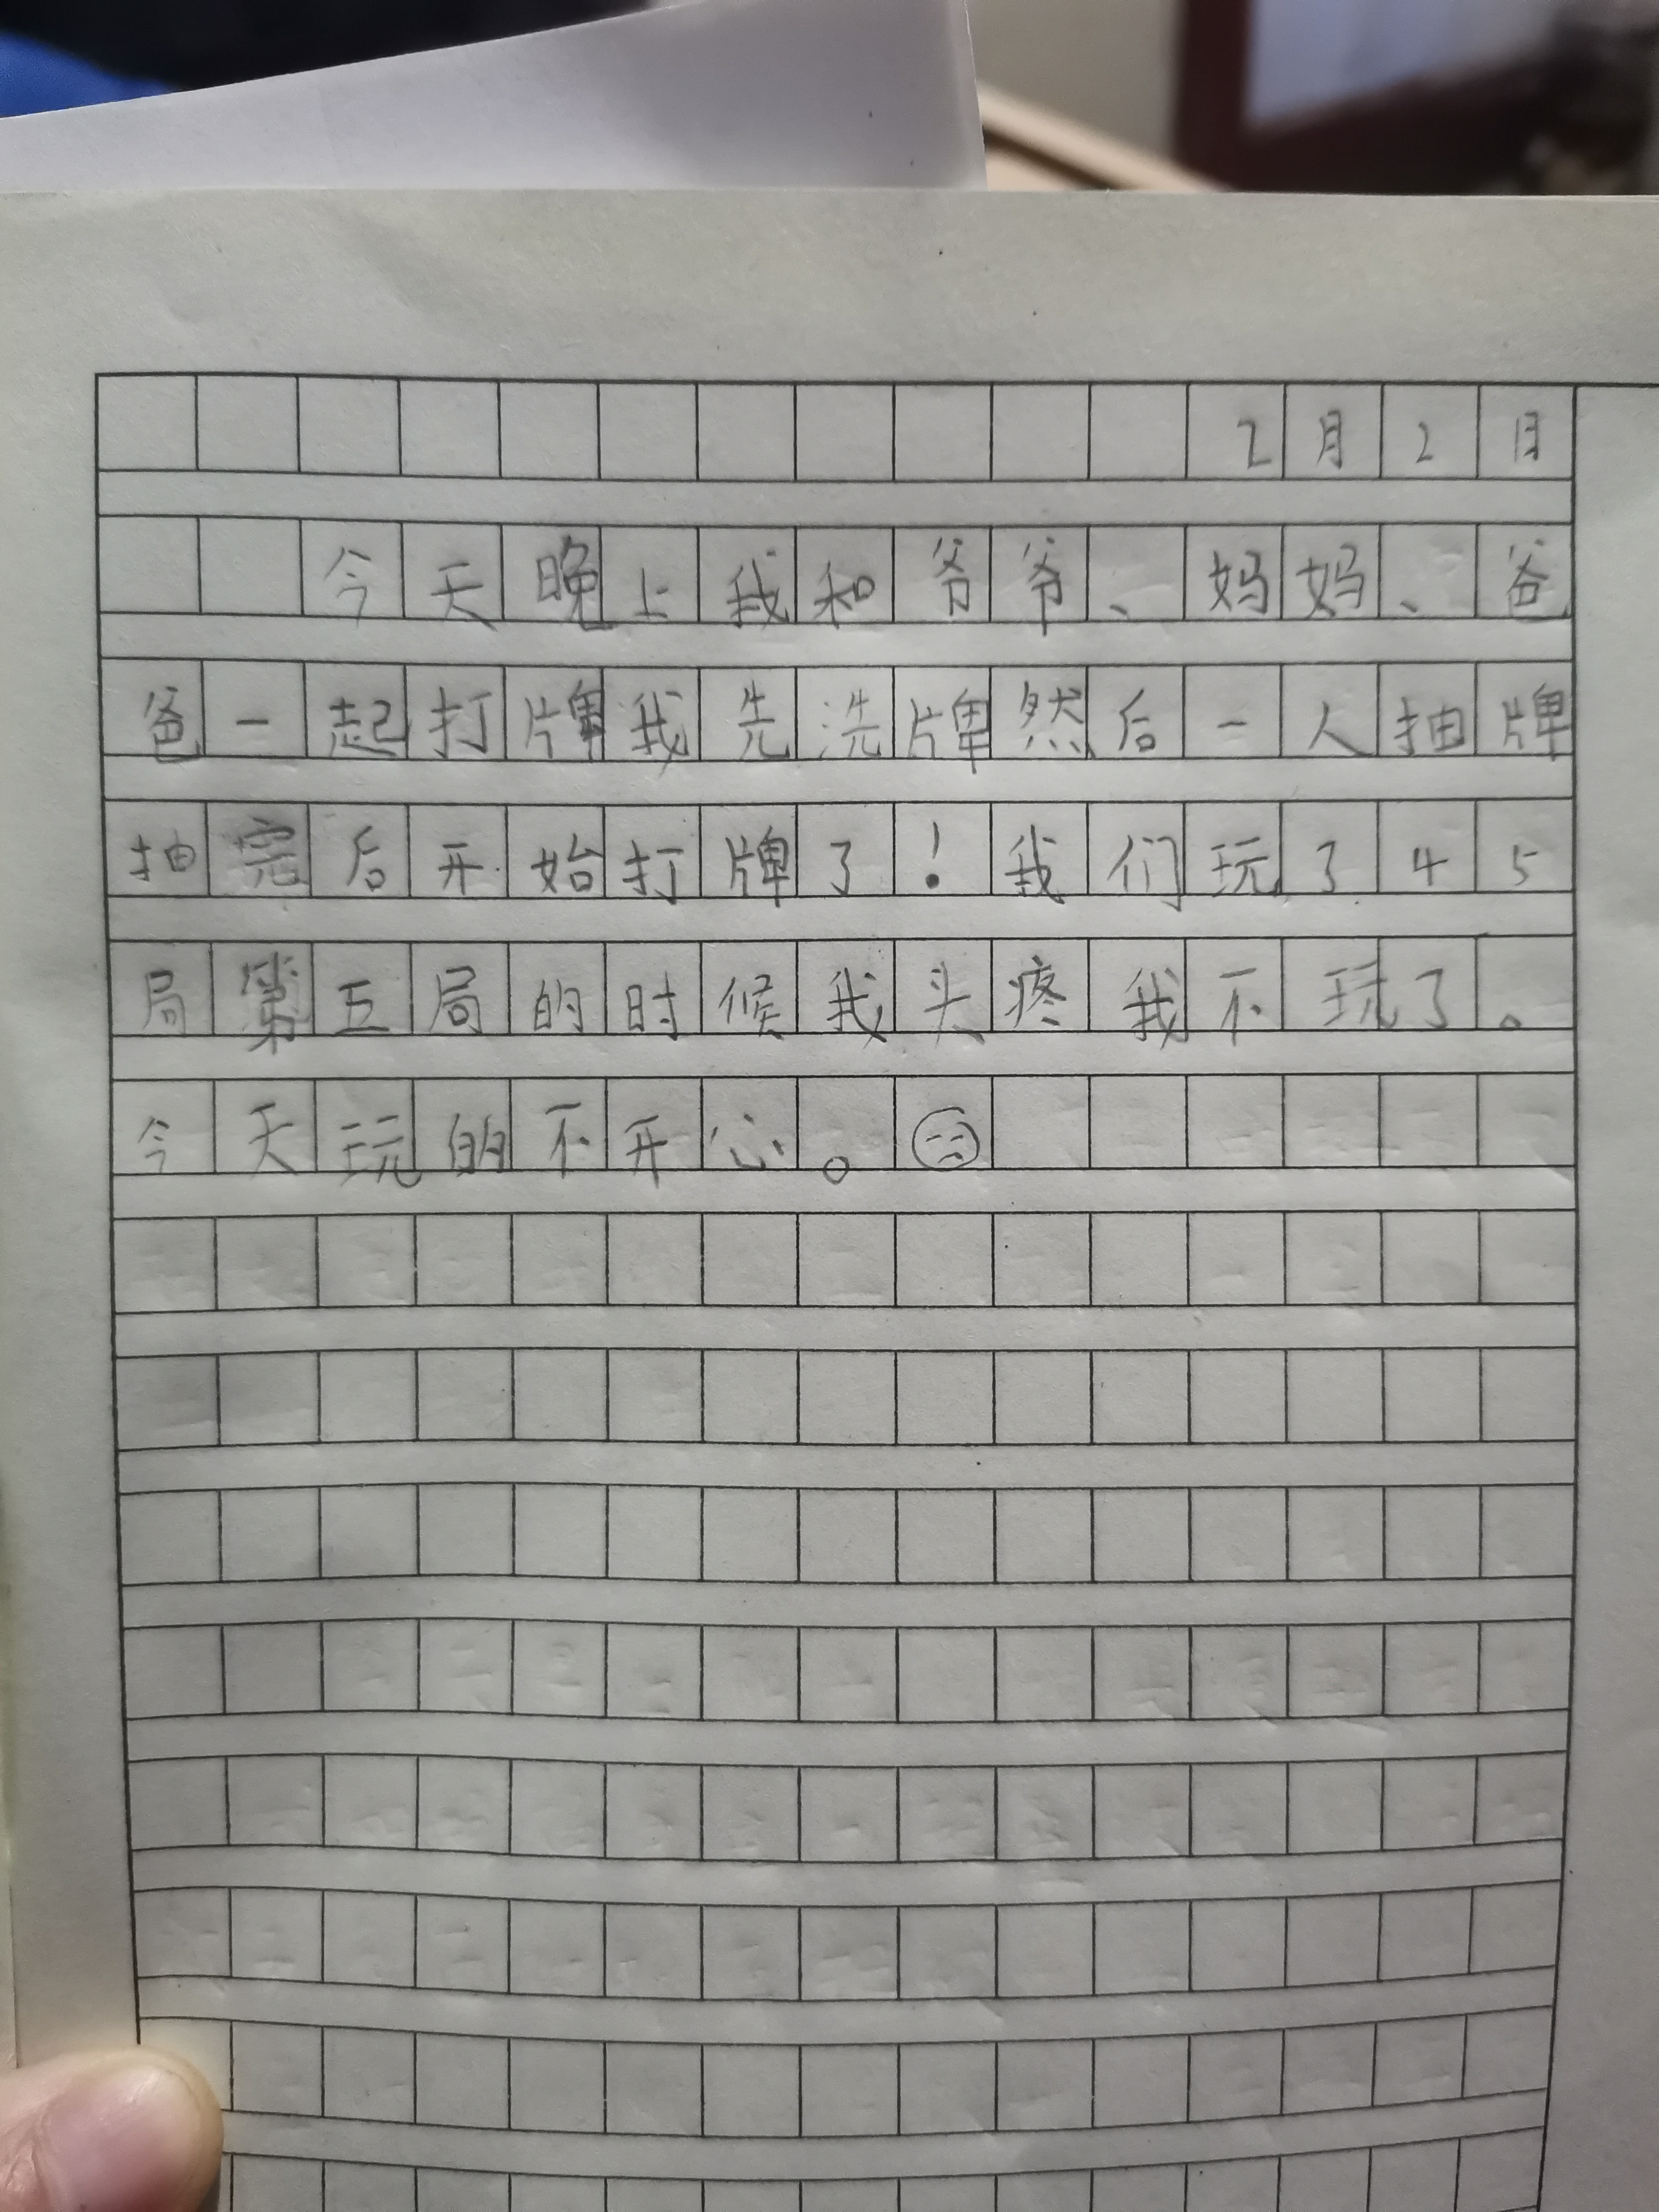 2月2日
今天晚上我和爷爷、妈妈、爸
爸一起打牌我先洗牌然后一人抽牌
抽完后开始打牌了！我们玩了45
局第五局的时候我头疼我不玩了。
今天玩的不开心。